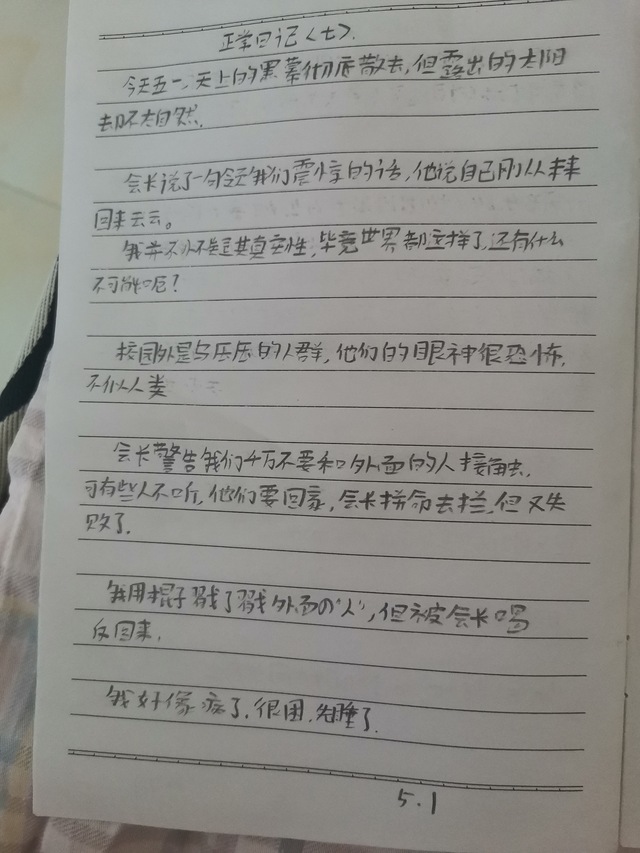 正常日记<七>.
今天五一,天上的黑幕彻底散去,但露出的太阳
却不太自然.
会长说了一句令我们震惊的话,他说自己刚从未来
回来云云。
我并不怀疑其真实性,毕竟世界都这样了,还有什么
不可能呢?
校园外是乌压压的人群,他们的眼神很恐怖,
不似人类
会长警告我们千万不要和外面的人接触,
可有些人不听,他们要回家,会长拼命去拦,但又失
败了.
我用棍子戳了戳外面の"人",但被会长喝
斥回来.
我好像病了,很困,先睡了.
5.1